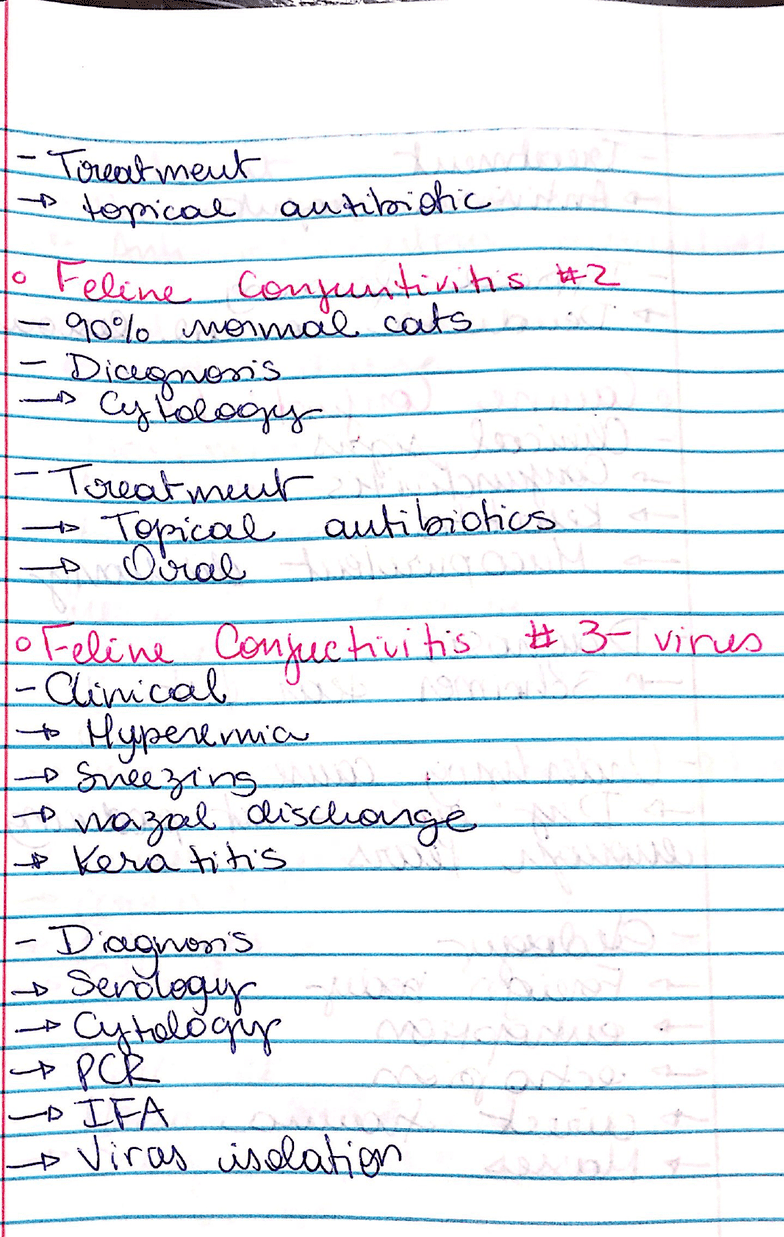 - Treatment
→ topical antibiotic
○ Feline Conjuntivitis #2
- 90% normal cats
- Diagnosis
→ Cytology
- Treatment
→ Topical antibiotics
→ Oral
○ Feline Conjuctivitis # 3- virus
- Clinical
→ Hyperemia
→ Sneezing
→ nazal discharge
→ Keratitis
- Diagnosis
→ Serology
→ Cytology
→ PCR
→ IFA
→ Viras isolation